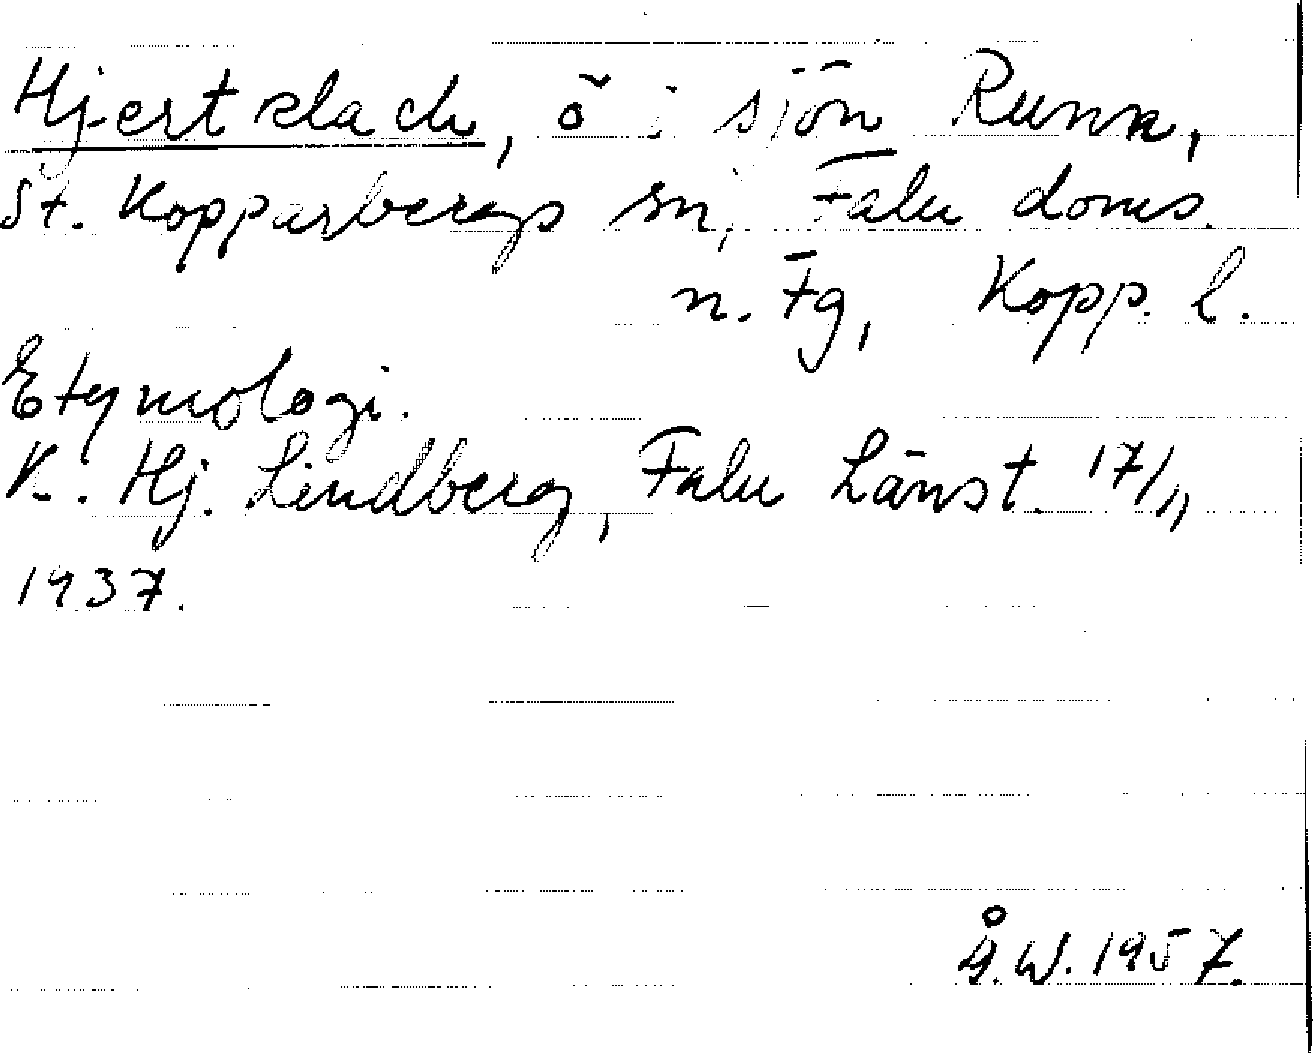 Hjertzlach, ö i sjön Runn,
St. Kopparbergs sn, Falu doms.
n. Fg, Kopp. l.
Etymologi.
K. Hj. Lindberg, Falu Länst. 17/11
1937.
Å.W. 1957.